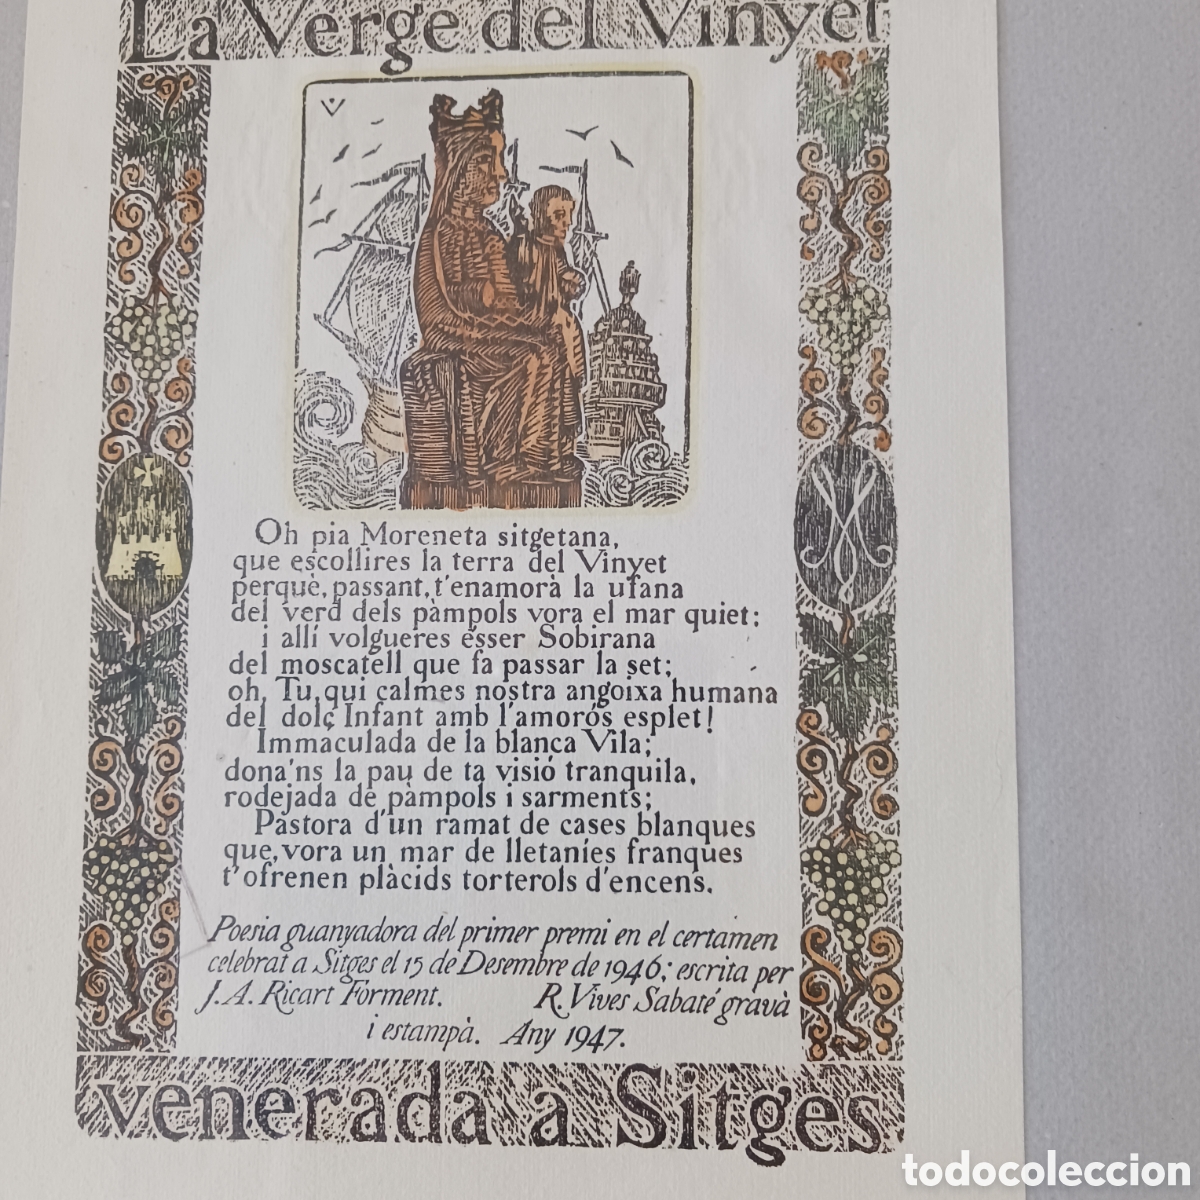 La Verge del Vinyet
Oh pia Moreneta sitgetana,
que escollires la terra del Vinyet
perquè, passant, t'enamorà la ufana
del verd dels pàmpols vora el mar quiet:
i allí volgueres ésser Sobirana
del moscatell que fa passar la set;
oh, Tu, qui calmes nostra angoixa humana
del dolç Infant amb l'amorós esplet!
Immaculada de la blanca Vila;
dona'ns la pau de ta visió tranquila,
rodejada de pàmpols i sarments;
Pastora d'un ramat de cases blanques
que, vora un mar de lletaníes franques
t'ofrenen plàcids torterols d'encens.
Poesia guanyadora del primer premi en el certamen
celebrat a Sitges el 15 de Desembre de 1946; escrita per
J. A. Ricart Forment. R. Vives Sabaté gravà
i estampà. Any 1947.
venerada a Sitges
todocoleccion